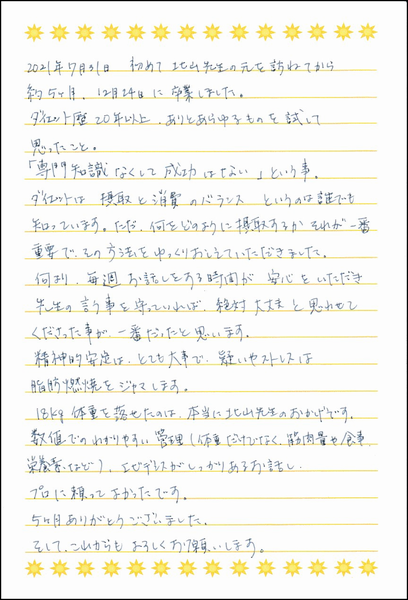 2021年7月31日 初めて北山先生の元を訪ねてから
約5ヶ月、12月24日に卒業しました。
ダイエット歴20年以上、ありとあらゆるものを試して
思ったこと。
「専門知識なくして成功はない」という事。
ダイエットは 摂取と消費のバランス というのは誰でも
知っています。ただ、何をどのように摂取するか それが一番
重要で、その方法をゆっくりおしえていただきました。
何より、毎週お話しをする時間が 安心をいただき
先生の言う事を守っていれば、絶対大丈夫と思わせて
くださった事が、一番だったと思います。
精神的安定は、とても大事で、疑いやストレスは
脂肪燃焼をジャマします。
18kg体重を落せたのは、本当に北山先生のおかげです。
数値でのわかりやすい管理(体重だけでなく、筋肉量や食事、
栄養素など)、エビデンスがしっかりあるお話し、
プロに頼ってよかったです。
5ヶ月ありがとうございました。
そして、これからもよろしくお願いします。